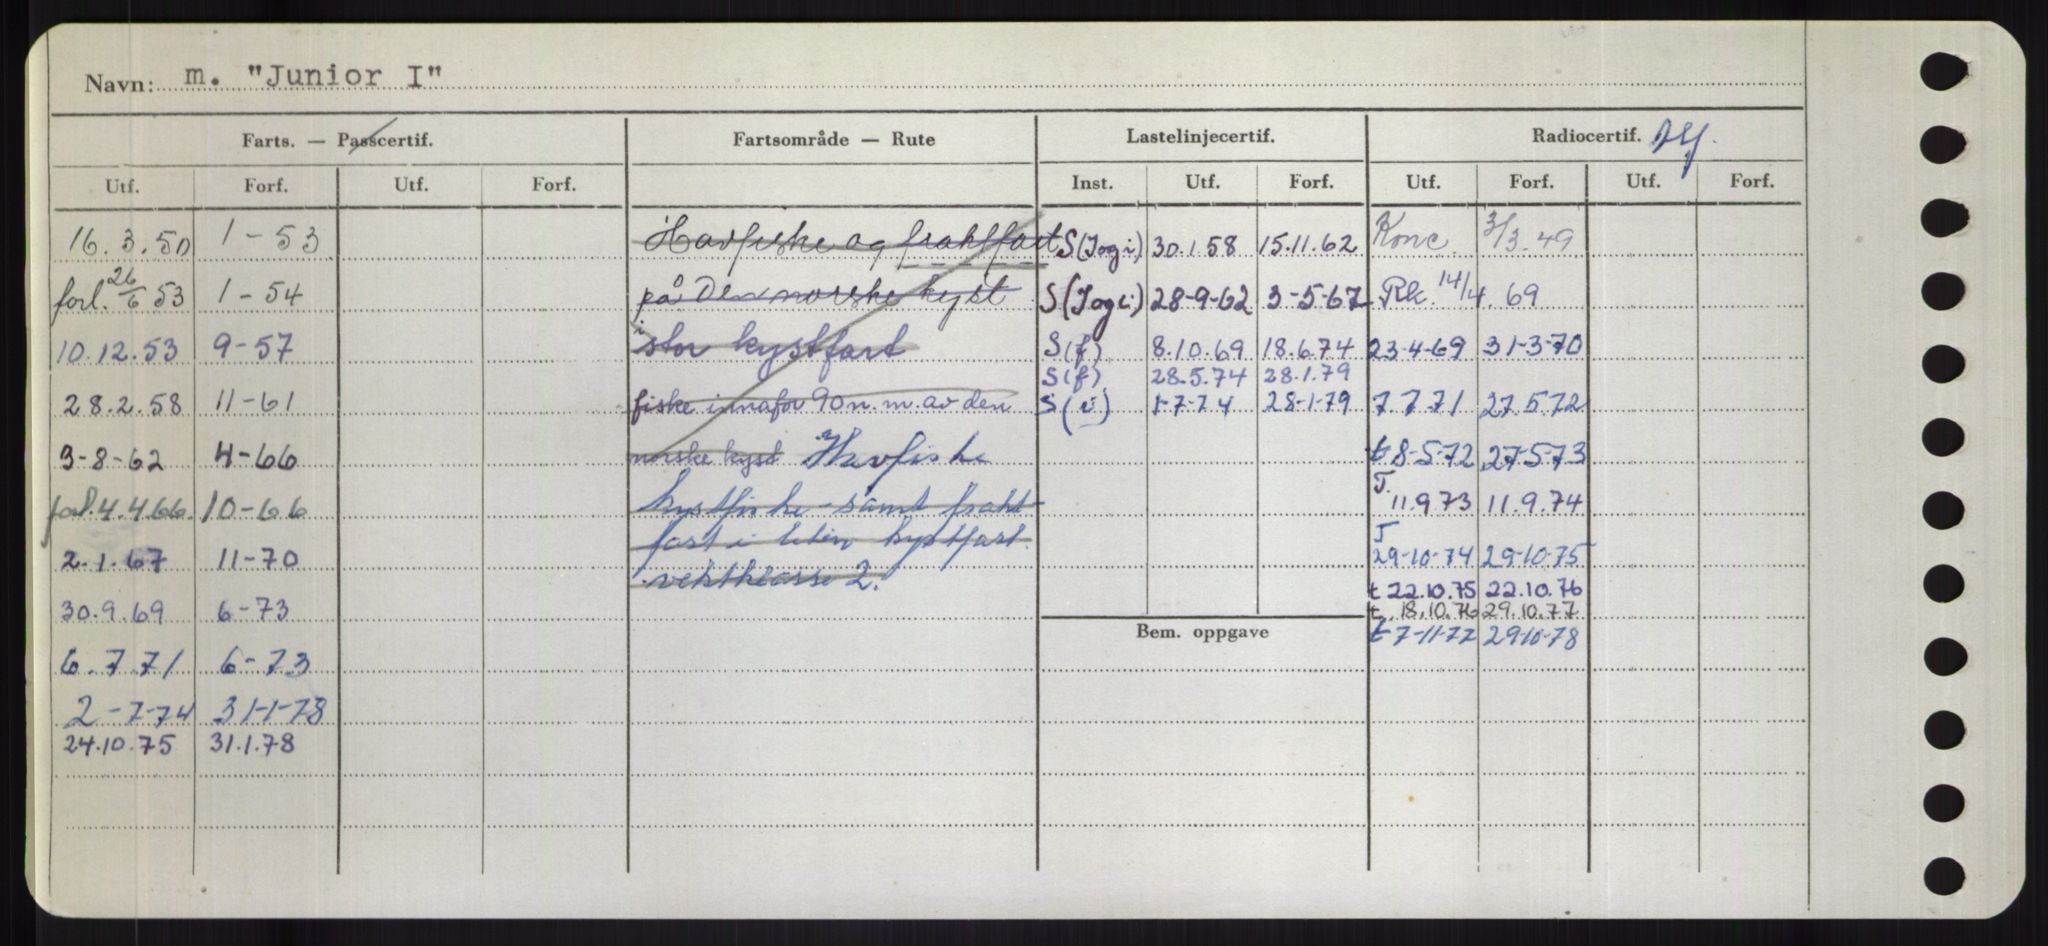 Navn: m. "Junior I"
Farts. — Passcertif. Fartsområde — Rute Lastelinjecertif. Radiocertif.
Utf. Forf. Utf. Forf. Inst. Utf. Forf. Utf. Forf. Utf. Forf.
16.3.50 1-53 Havfiske og fraktfart S (I og i) 30.1.58 15.11.62 Konc. 3/3.49
forl. 26/6 53 1-54 på den norske kyst S (I og i) 28-9-62 3-5-67 Rk. 14/4. 69
10.12.53 9-57 i stor kystfart S(f) 8.10.69 18.6.74 23-4-69 31-3-70
S(f) 28.5.74 28.1.79
28.2.58 11-61 fiske innafor 90 n.m. av den S(i) 1-7-74 28-1-79 7.7.71 27.5.72
3-8-62 4-66 norske kyst Havfiske t 8-5-72 27-5-73
forl. 4.4.66. 10-66 kystfiske samt frakt- T. 11.9.73 11.9.74
fart i liten kystfart.
2.1.67 11-70 vektklasse 2. T 29-10-74 29-10-75
t 22.10.75 22.10.76
30.9.69 6-73 t. 18.10.76 29.10.77
Bem. oppgave t 7-11-77 29-10-78
6.7.71 6-73
2-7-74 31-1-78
24.10.75 31.1.78